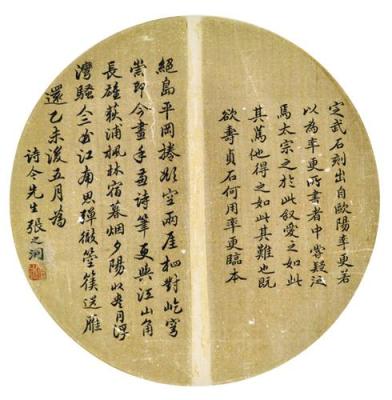 定武石刻出自歐陽率更若
以為率更所書者中疑
馬太宗之於此叙愛之如此
其萬他得之如此其難也既
欲壽貞石何用率更臨本
絕島平岡捲影空兩厓相對屹穹
崇即今畫手兼詩筆更與江山角
長雄荻浦楓林宿暮烟夕陽收盡月浮
灣騷江南思彈徹箜篌送雁
還乙未後五月為
詩令先生張之洞